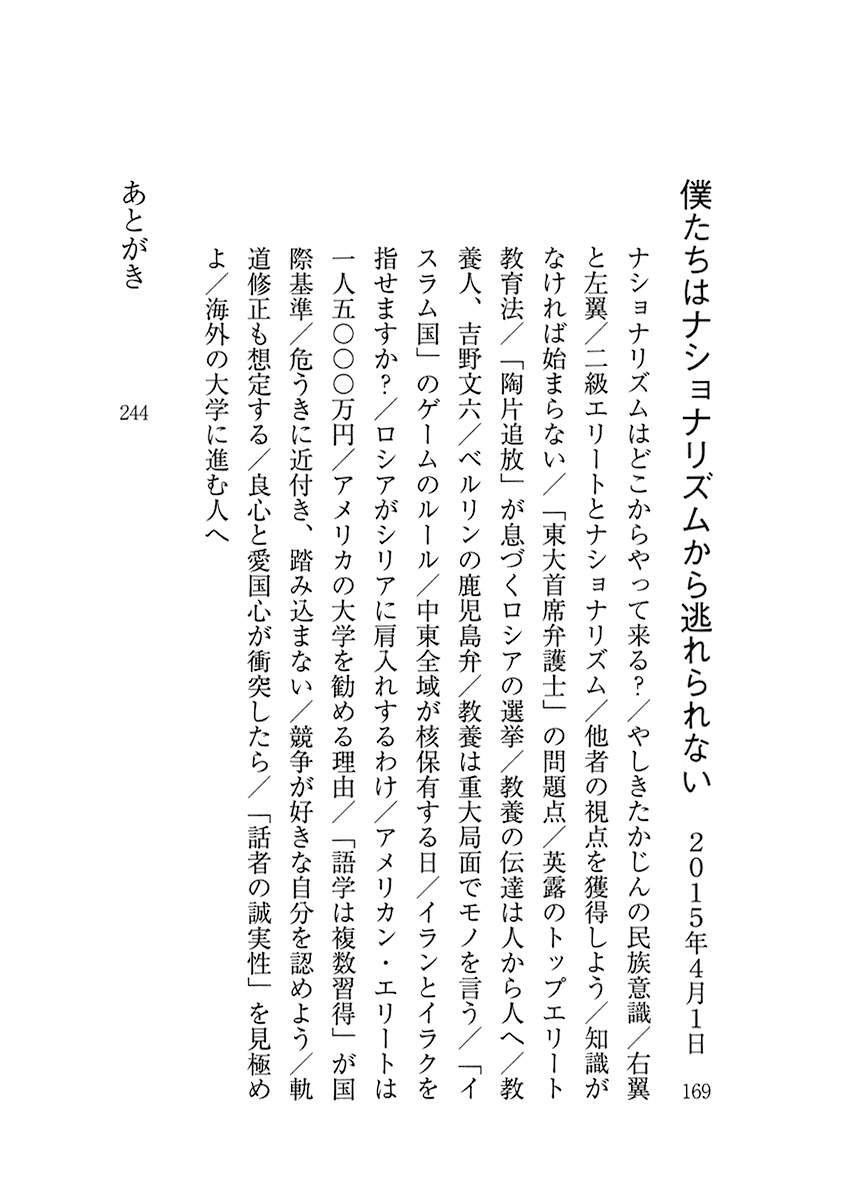 僕たちはナショナリズムから逃れられない　2015年4月1日　169
ナショナリズムはどこからやって来る？／やしきたかじんの民族意識／右翼
と左翼／二級エリートとナショナリズム／他者の視点を獲得しよう／知識が
なければ始まらない／「東大首席弁護士」の問題点／英露のトップエリート
教育法／「陶片追放」が息づくロシアの選挙／教養の伝達は人から人へ／教
養人、吉野文六／ベルリンの鹿児島弁／教養は重大局面でモノを言う／「イ
スラム国」のゲームのルール／中東全域が核保有する日／イランとイラクを
指せますか？／ロシアがシリアに肩入れするわけ／アメリカン・エリートは
一人五〇〇〇万円／アメリカの大学を勧める理由／「語学は複数習得」が国
際基準／危うきに近付き、踏み込まない／競争が好きな自分を認めよう／軌
道修正も想定する／良心と愛国心が衝突したら／「話者の誠実性」を見極め
よ／海外の大学に進む人へ
あとがき　244